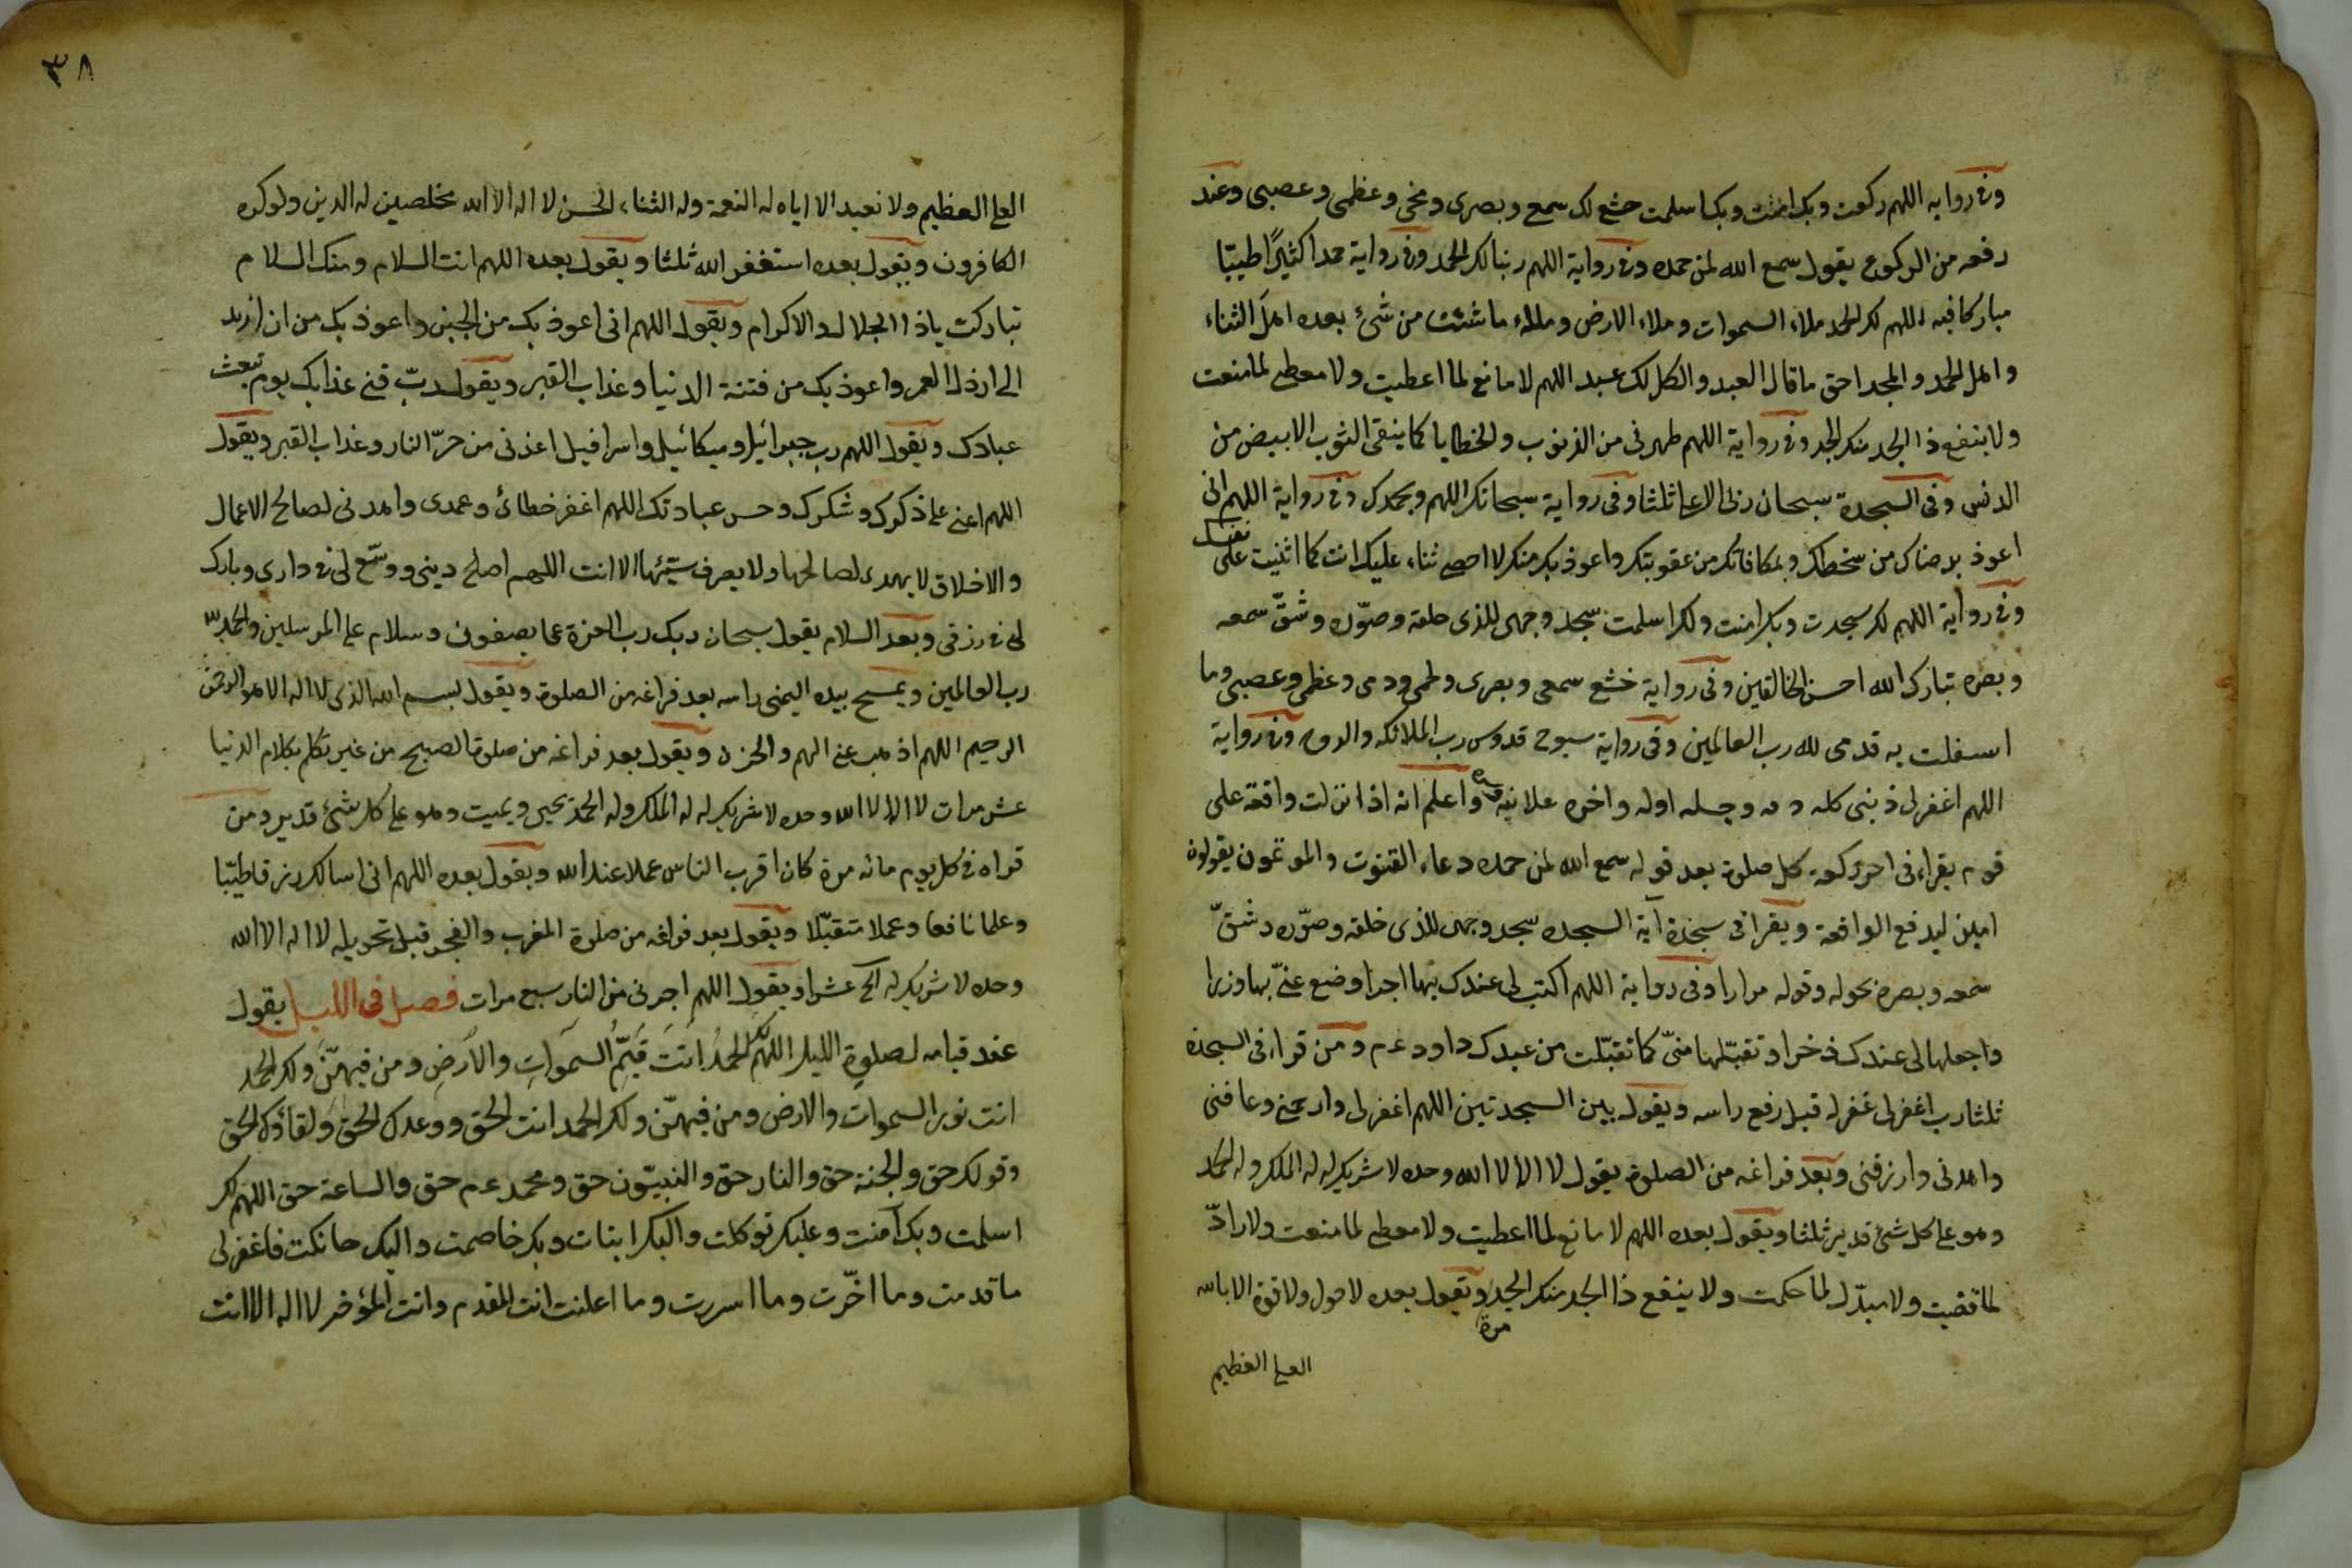 وفى رواية اللهم ركعت وبك امنت وبك اسلمت خشع لك سمعى وبصرى ومخى وعظمى وعصبى وعند
رفعه من الركوع يقول سمع الله لمن حمده وفى رواية اللهم ربنا لك الحمد وفى رواية حمدا كثيرًا طيبّا
مباركا فيه اللهم لك الحمد ملاء السموات وملاء الارض وملاء ما شئت من شئ بعده اهلَ الثناء
واهل الحمد والمجد احق ما قال العبد والكل لك عبد اللهم لا مانع لما اعطيت ولا معطى لما منعت
ولا ينفع ذا الجد منك الجد وفى رواية اللهم طهرنى من الذنوب والخطايا كما ينقى الثوب الابيض من
الدنس وفى السجدة سبحان ربى الاعلى ثلثا وفى رواية سبحانك اللهم وبحمدك وفى رواية اللهم انى
اعوذ برضاك من سخطك وبمعافاتك من عقوبتك واعوذ بك منك لا احصى ثناء عليك انت كما اثنيت على نفسك
وفى رواية اللهم لك سجدت وبك امنت ولك اسلمت سجد وجهى للذى خلقه وصوّره وشقّ سمعه
وبصره تبارك الله احسن الخالقين وفى رواية خشع سمعى وبصرى ولحمى ودمى وعظمى وعصبى وما
استقلت به قدمى لله رب العالمين وفى رواية سبوح قدوس رب الملائكه والروح وفى رواية
اللهم اغفر لى ذنبى كله دقه وجله اوله واخره علانيته وسره واعلم انه اذا نزلت واقعة على
قوم يقراء فى اخر ركعة كل صلوة بعد قوله سمع الله لمن حمده دعاء القنوت والمؤتمون يقولون
امين ليدفع الواقعة ويقرا فى سجدة آية السجده سجد وجهى للذى خلقه وصوّره وشقّ
سمعه وبصره بحوله وقوته مرارا وفى رواية اللهم اكتب لى عندك بها اجرا وضع عنّى بها وزرا
واجعلها لى عندك ذخرا وتقبّلها منىّ كما تقبّلت من عبدك داود ءم ومن قراء فى السجدة
ثلثا رب اغفر لى غفر له قبل رفع راسه ويقول بين السجدتين اللهم اغفر لى وارحمنى وعافنى
واهدنى وارزقنى وبعد فراغه من الصلوة يقول لا اله الا الله وحده لا شريك له له الملك وله الحمد
وهو على كل شئ قدير ثلثا ويقول بعده اللهم لا مانع لما اعطيت ولا معطى لما منعت ولا رادّ
لما قضيت ولا مبدّل لما حكمت ولا ينفع ذا الجد منك الجد مرة ويقول بعده لا حول ولا قوة الا بالله
العلى العظيم
٣٨
العلى العظيم ولا نعبد الا اياه له النعمة وله الثناء الحسن لا اله الا الله مخلصين له الدين ولو كره
الكافرون ويقول بعده استغفر الله ثلثا ويقول بعده اللهم انت السلام ومنك السلام
تباركت ياذا الجلال والاكرام ويقول اللهم انى اعوذ بك من الجبن واعوذ بك من ان ازد
الى ارذل العمر واعوذ بك من فتنة الدنيا وعذاب القبر ويقول ربّ قنى عذابك يوم تبعث
عبادك ويقول اللهم رب جبرائيل وميكائيل واسرافيل اعذنى من حرّ النار وعذاب القبر ويقول
اللهم اعنى على ذكرك وشكرك وحسن عبادتك اللهم اغفر خطائ وعمدى واهدنى لصالح الاعمال
والاخلاق لا يهدى لصالحها ولا يصرف سيّئها الا انت اللهم اصلح دينى ووسّع لى فى دارى وبارك
لى فى رزقى وبعد السلام يقول سبحان ربك رب العزة عما يصفون وسلام على المرسلين والحمد لله
رب العالمين ويمسح بيده اليمنى راسه بعد فراغه من الصلوة ويقول بسم الله الذى لا اله الا هو الرحمن
الرحيم اللهم اذهب عنى الهم والحزن ويقول بعد فراغه من صلوة الصبح من غير تكلم بكلام الدنيا
عشر مرات لا اله الا الله وحده لا شريك له له الملك وله الحمد يحيى ويميت وهو على كل شئ قدير ومن
قراه فى كل يوم مائه مرة كان اقرب الناس عملا عند الله ويقول بعده اللهم انى اسالك رزقا طيّبا
وعلما نافعا وعملا متقبّلا ويقول بعد فراغه من صلوة المغرب والفجر قبل تحويله لا اله الا الله
وحده لا شريك له الخ عشرا ويقول اللهم اجرنى من النار سبع مرات فصل فى الليل يقول
عند قيامه لصلوة الليل اللهم لك الحمد انت قيّم السموات والارض ومن فيهنّ ولك الحمد
انت نور السموات والارض ومن فيهنّ ولك الحمد انت الحق ووعدك الحق ولقاؤك الحق
وقولك حق والجنة حق والنار حق والنبيّون حق ومحمد ءم حق والساعة حق اللهم لك
اسلمت وبك آمنت وعليك توكلت واليك انبت وبك خاصمت واليك حاكمت فاغفر لى
ما قدمت وما اخّرت وما اسررت وما اعلنت انت المقدم وانت المؤخر لا اله الا انت